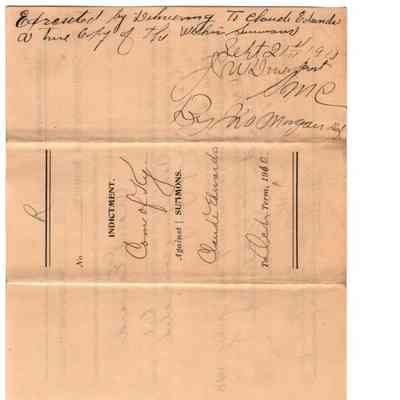 Executed by Delivering To Claude Edwards
a true Copy of the Within Summons
Sept 21st 191
J W Davenport
SMC
By Jno Morgan
R
No
INDICTMENT.
Com of Ky
Against } SUMMONS.
Claude Edwards
To Term, 190